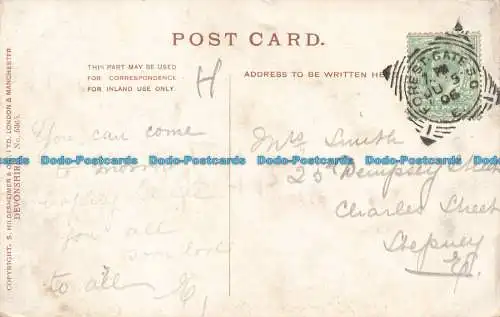 POST CARD.
THIS PART MAY BE USED
FOR CORRESPONDENCE
FOR INLAND USE ONLY.
H
ADDRESS TO BE WRITTEN HE
FOREST GATE S.O
JU 5
06
COPYRIGHT, S. HILDESHEIMER & LTD, LONDON & MANCHESTER
DEVONSHIRE No. 5365.
You can come
to
you all
to all
Mrs Smith
25 Dempsey Street
Charles Street
Stepney
E.
Dodo-Postcards Dodo-Postcards Dodo-Postcards Dodo-Postcards
Dodo-Postcards Dodo-Postcards Dodo-Postcards Dodo-Postcards